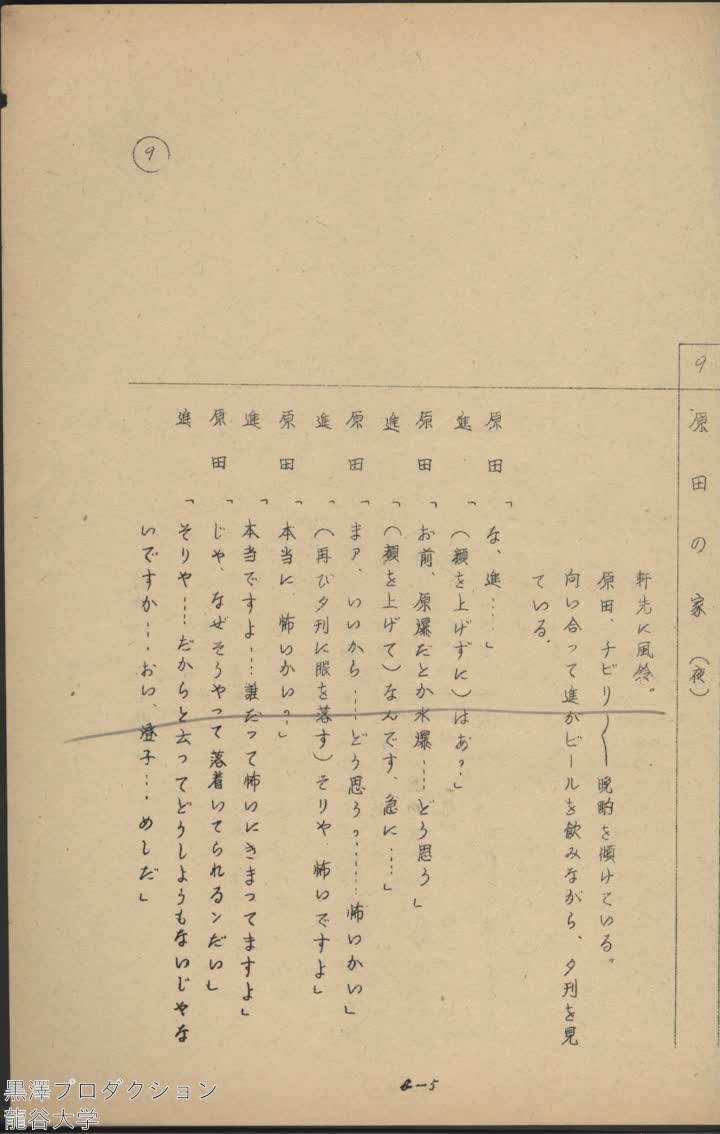 9 原田の家（夜）
軒先に風鈴。
原田、チビリ〱晩酌を傾けている。
向い合って進がビールを飲みながら、夕刊を見
ている。
原田「な、進……」
進「（顔を上げずに）はあ？」
原田「お前、原爆だとか水爆……どう思う」
進「（顔を上げて）なんです、急に……」
原田「まァ、いいから……どう思う？……怖いかい」
進「（再び夕刊に眼を落す）そりや、怖いですよ」
原田「本当に、怖いかい？」
進「本当ですよ……誰だって怖いにきまってますよ」
原田「じゃ、なぜそうやって落着いてられるンだい」
進「そりや……だからと云ってどうしようもないじゃな
いですか……おい、澄子……めしだ」
9
6-5
黒澤プロダクション
龍谷大学